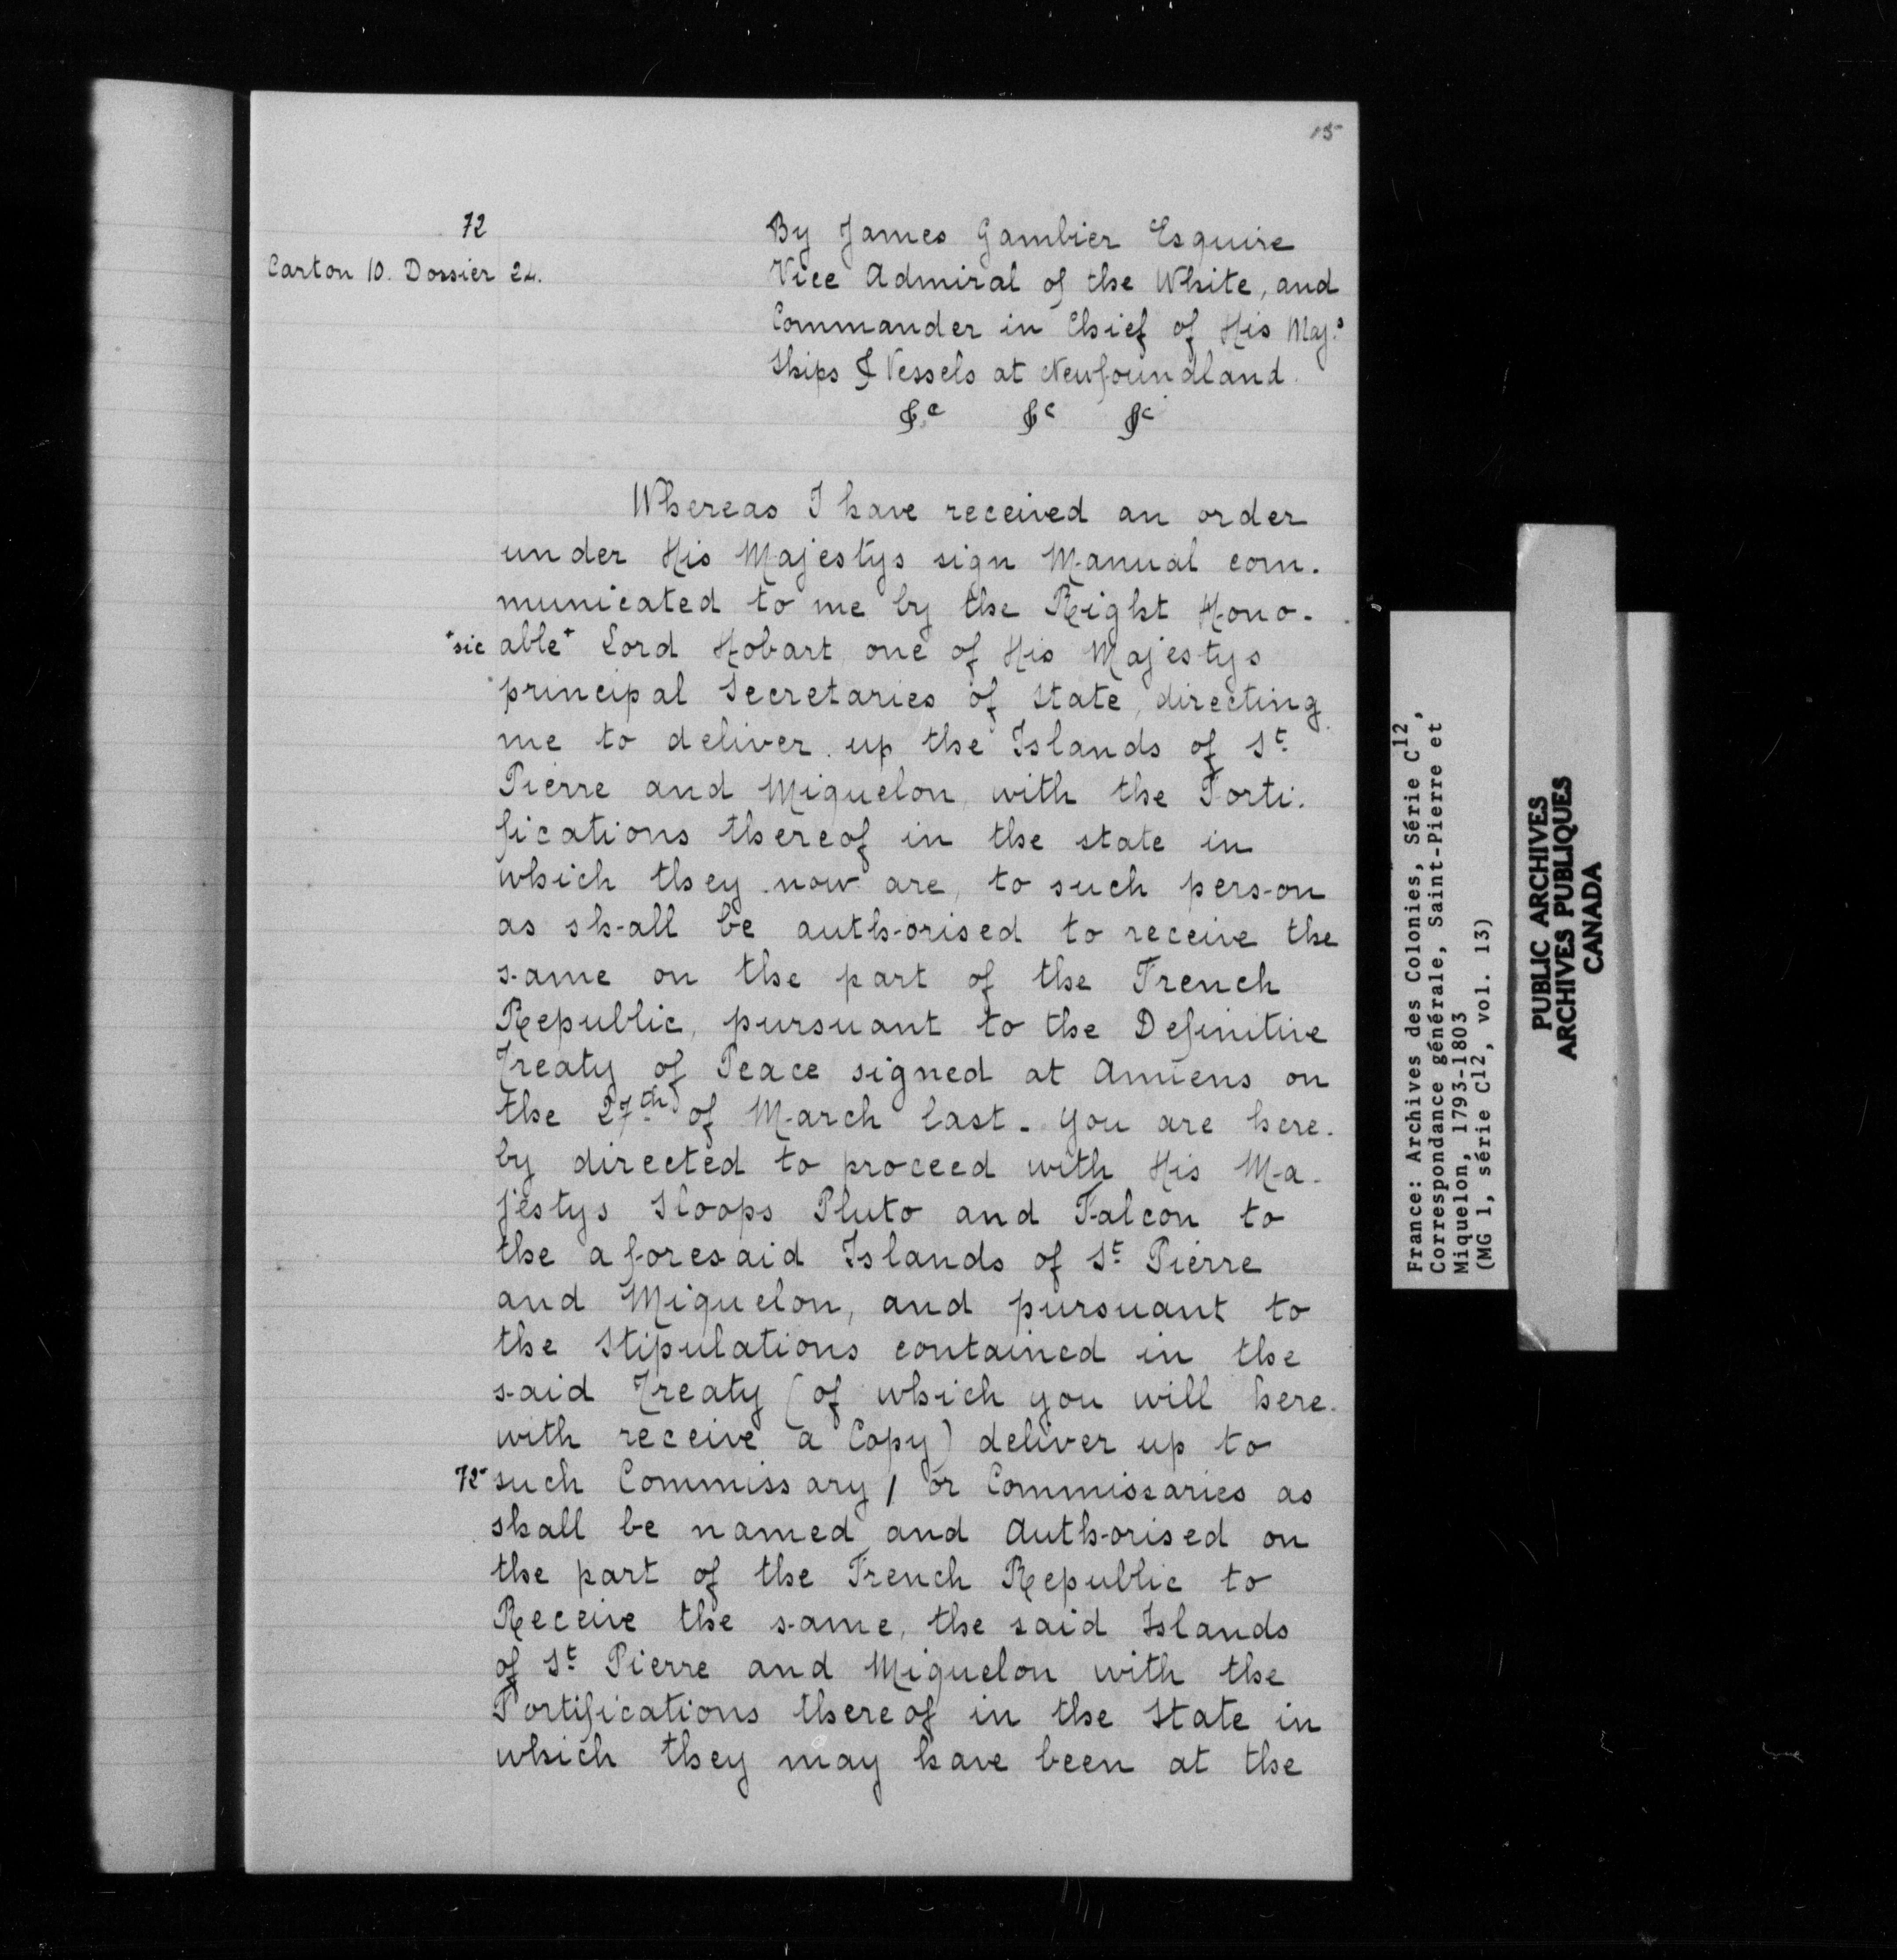 15
72
Carton 10. Dossier 24.
By James Gambier Esquire
Vice Admiral of the White, and
Commander in Chief of His Maj.s
Ships & Vessels at Newfoundland.
&c &c &c
Whereas I have received an order
under His Majestys sign Manual com-
municated to me by the Right Hono-
+sic able+ Lord Hobart, one of His Majestys
principal Secretaries of State, directing
me to deliver up the Islands of St
Pierre and Miquelon, with the Forti-
fications thereof in the state in
which they now are, to such person
as shall be authorised to receive the
same on the part of the French
Republic, pursuant to the Definitive
Treaty of Peace signed at Amiens on
the 27th of March last. You are here-
by directed to proceed with His Ma-
jestys Sloops Pluto and Falcon to
the aforesaid Islands of St Pierre
and Miquelon, and pursuant to
the Stipulations contained in the
said Treaty (of which you will here-
with receive a Copy) deliver up to
72v such Commissary / or Commissaries as
shall be named and Authorised on
the part of the French Republic to
Receive the same, the said Islands
of St Pierre and Miquelon with the
Fortifications thereof in the State in
which they may have been at the
France: Archives des Colonies, Série C12,
Correspondance générale, Saint-Pierre et
Miquelon, 1793-1803
(MG 1, série C12, vol. 13)
PUBLIC ARCHIVES
ARCHIVES PUBLIQUES
CANADA